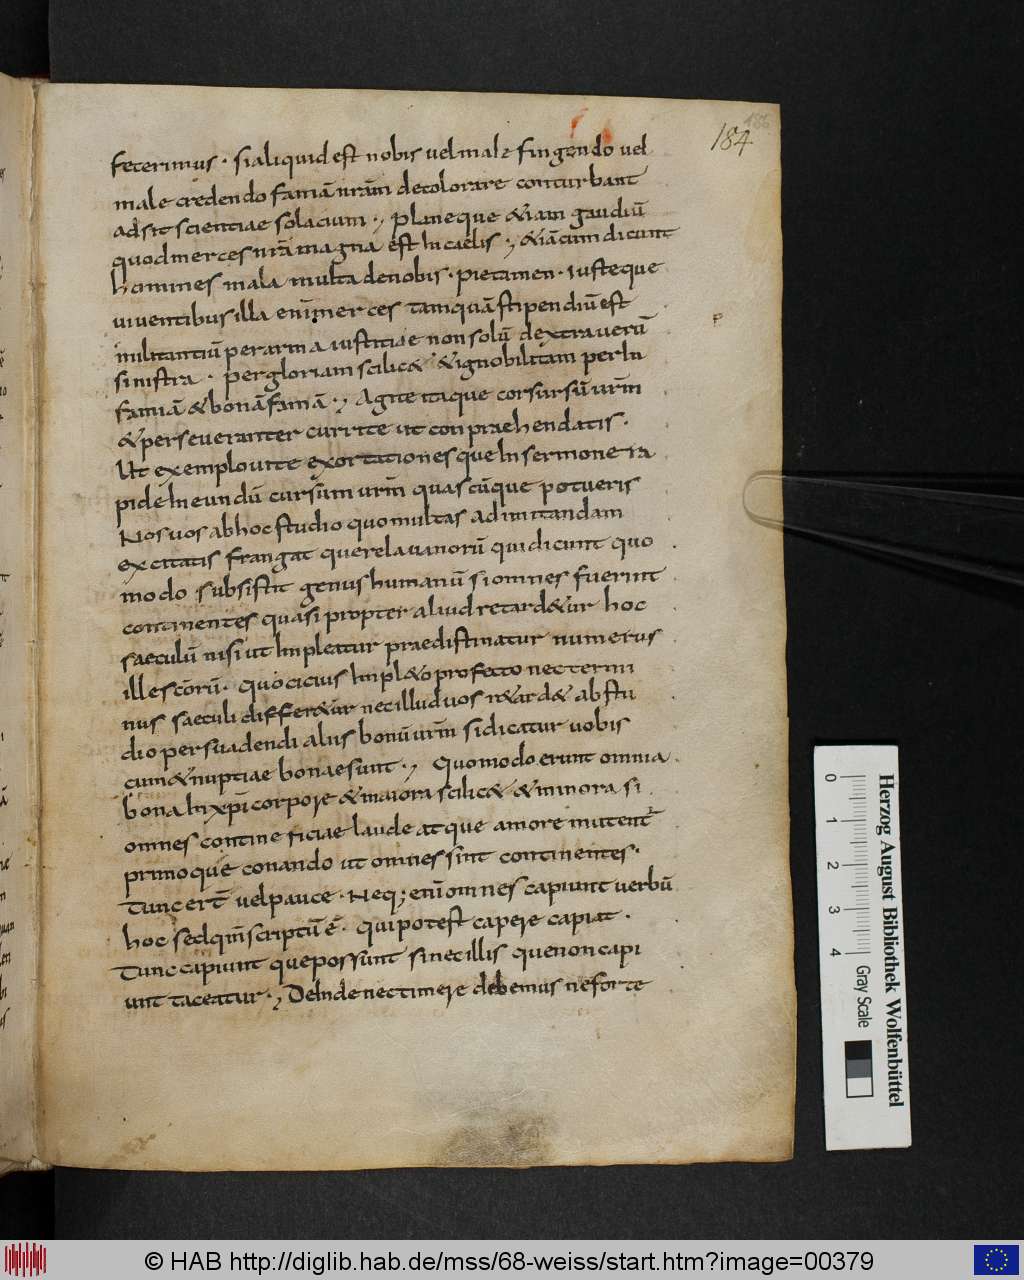 184
feterimus · si aliquid est nobis vel male fingendo vel
male credendo famā nr̄am decolorare conturbant
adsit scientiae solacium ·, planeque &iam gaudiū
quod merces nr̄a magna est In caelis ·, &iā cum dicunt
homines mala multa de nobis · pie tamen · iusteque
viventibus illa enī merces tamquā stipendiū est
militantiū per arma iustitiae non solū dextra verū
sinistra · per gloriam scilic& &ignobilitam per In
famiā & bonā famā ·, Agite itaque corsursū vr̄m
& perseveranter currite ut conpraehendatis ·
Ut exemplo vite exortationesque In sermone ra
pide In eundū cursum vr̄m quascūque potueris
Nos vos ab hoc studio quo multas ad imitandam
excitatis frangat querela vanorū qui dicunt quo
modo subsistit genus humanū si omnes fuerint
continentes quasi propter aliud retard&ur hoc
saeculū nisi ut Impleatur praedistinatur numerus
ille scōrū · quo cicius Impl&o profecto nec termi
nus saeculi differ&ur nec illud vos r&ard& ab stu
dio persuadendi aliis bonū vr̄m si dicatur vobis
cum & nuptiae bonae sunt ·, Quomodo erunt omnia
bona In xp̄i corpore & maiora scilic& & minora si
omnes contineficiae laude atque amore imitent᷑
primo que conando ut omnes sint continentes ·
tunc ert̄ vel pauce · Neq; enī omnes capiunt verbū
hoc sed qm̄ scriptū ē · qui potest capere capiat ·
Tunc capiunt que possunt si nec illis que non capi
unt taceatur ·, DeInde nec timere debemus ne forte
Herzog August Bibliothek Wolfenbüttel
0 1 2 3 4
Gray Scale
© HAB http://diglib.hab.de/mss/68-weiss/start.htm?image=00379